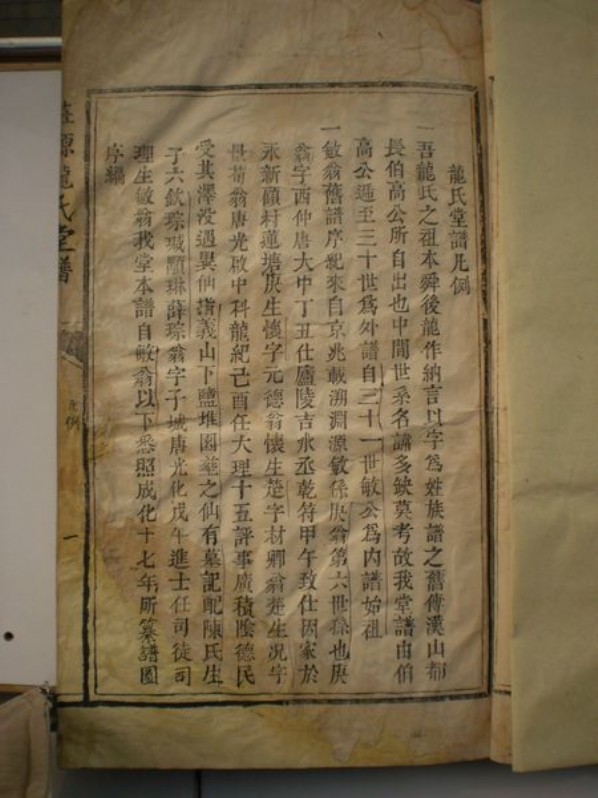 龍氏堂譜凡例
一吾龍氏之祖本舜後龍作納言以字為姓族譜之舊傳漢山都
長伯高公所自出也中間世系名諱多缺莫考故我堂譜由伯
高公遞至三十世為外譜自三十一世敏公為內譜始祖
一敏翁舊譜序紀來自京兆載溯淵源敏係庚翁第六世孫也庚
翁字西仲唐大中丁丑仕廬陵吉水丞乾符甲午致仕因家於
永新顧村蓮塘庚生懷字元德翁懷生楚字材卿翁楚生况字
景荀翁唐光啟中科龍紀己酉任大理十五評事廣積陰德民
受其澤没遇異仙指義山下鹽堆園葬之仙有墓記配陳氏生
子六欽琮瑊願琳薛琮翁字子城唐光化戊午進士任司徒司
理生敏翁我堂本譜自敏翁以下悉照成化十七年所纂譜圖
序編
源龍氏堂譜
凡例
一